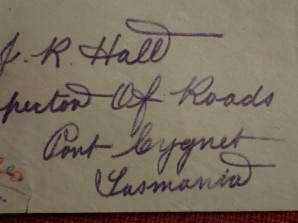 J. R. Hall
pector Of Roads
Port Cygnet
Tasmania